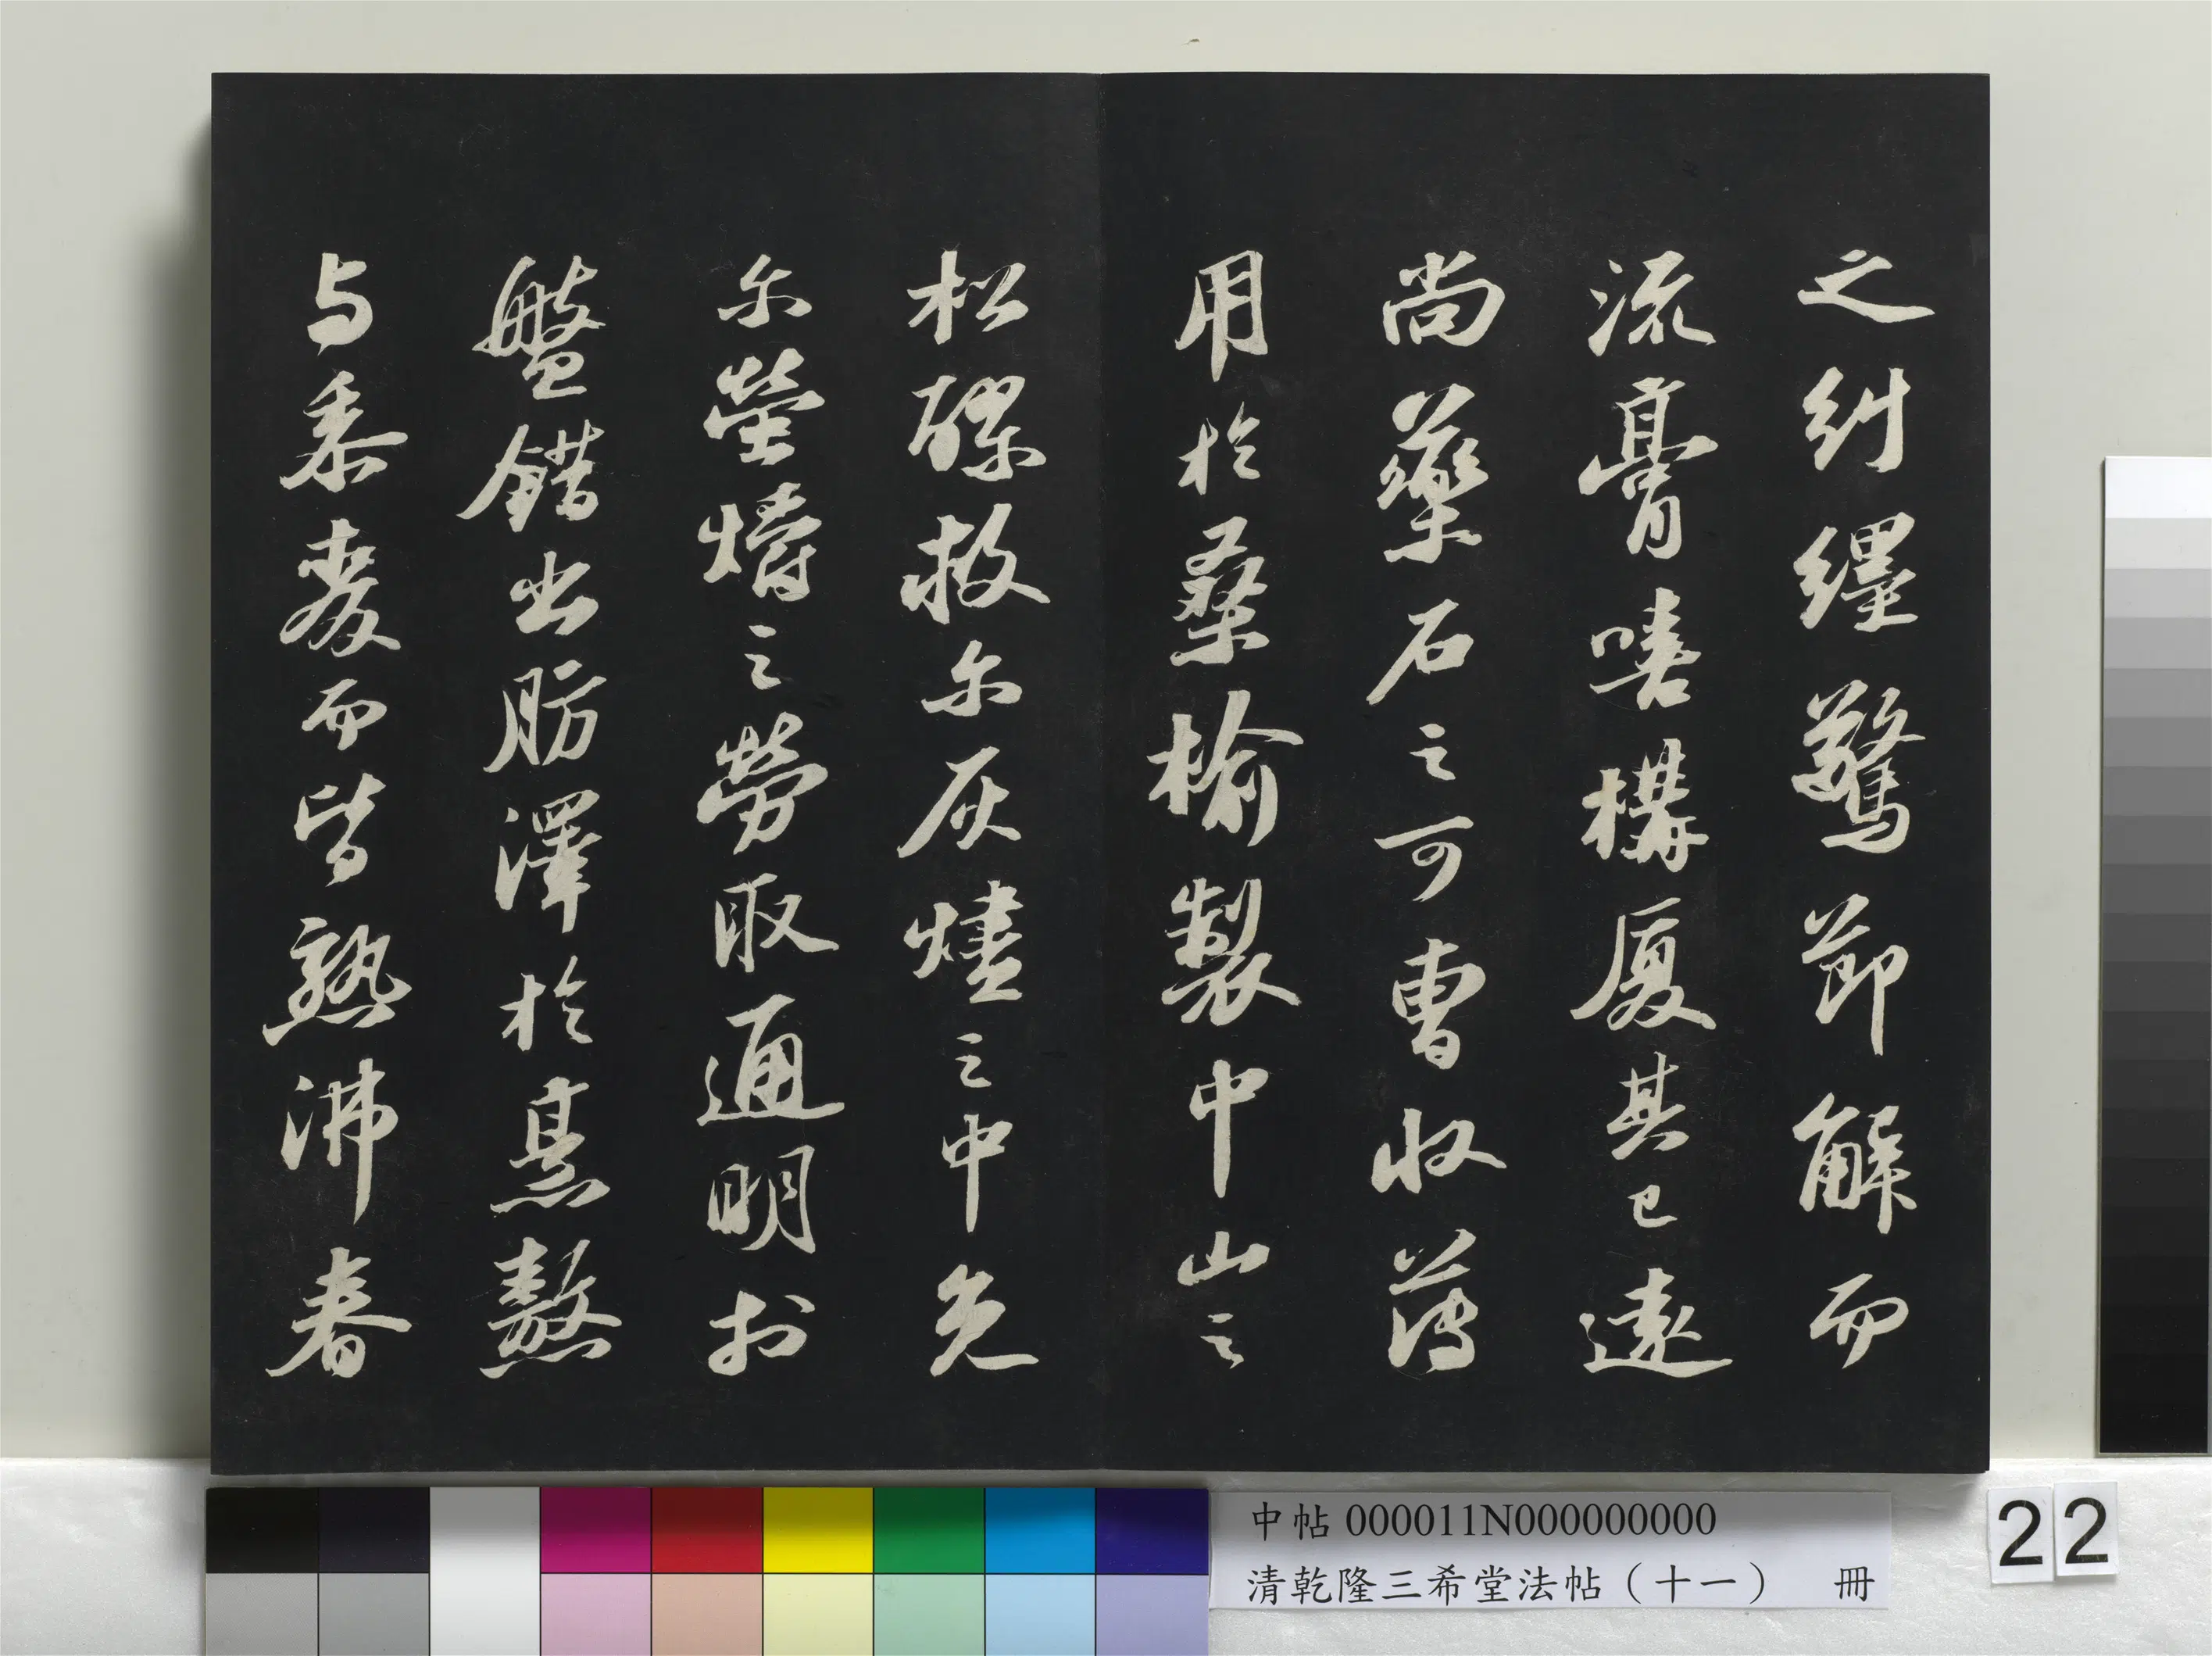 之糾纏驚節解而
流膏嗟構廈其已遠
尚藥石之可曹收薄
用於桑榆製中山之
松醪救爾灰燼之中免
爾螢爝之勞取通明於
盤錯出肪澤於烹熬
與黍麥而皆熟沸舂
中帖 000011N000000000
清乾隆三希堂法帖（十一） 冊
22